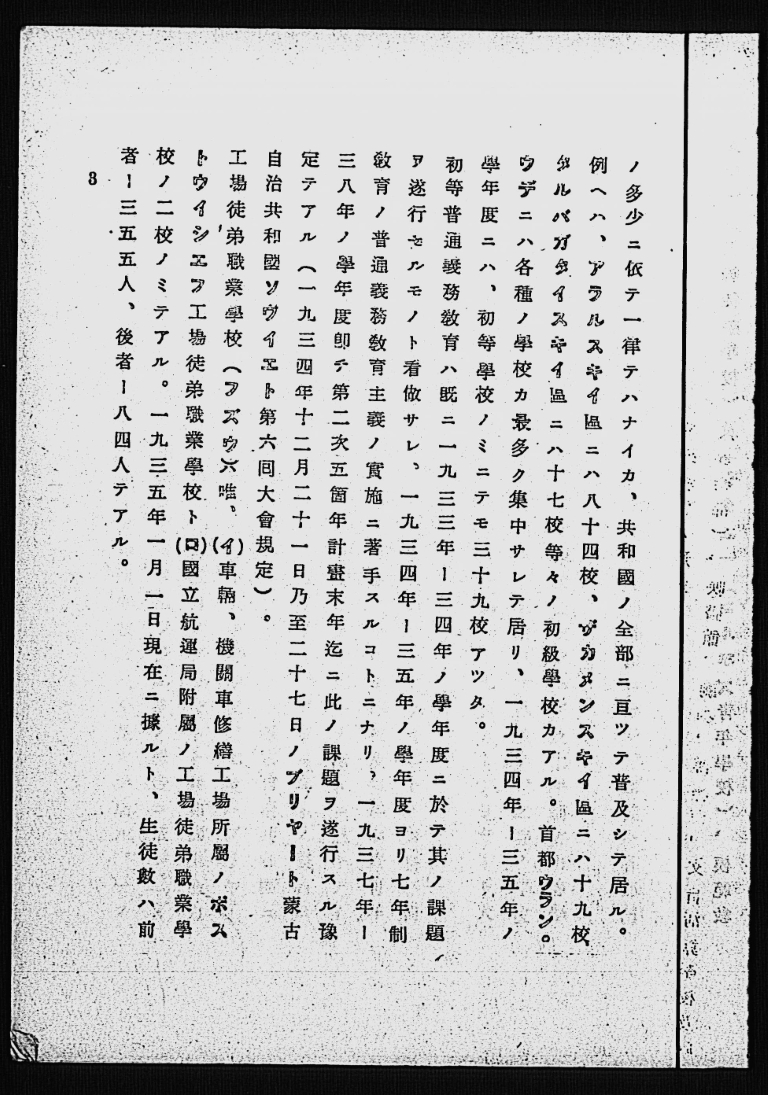 ノ多少ニ依テ一律テハナイカ、共和國ノ全部ニ亘ツテ普及シテ居ル。
例ヘハ、アラルスキイ區ニハ八十四校、ザカメンスキイ區ニハ十九校
タルバガタイスキイ區ニハ十七校等々ノ初級學校カアル。首都ウラン。
ウデニハ各種ノ學校カ最多ク集中サレテ居リ、一九三四年ー三五年ノ
學年度ニハ、初等學校ノミニテモ三十九校アツタ。
初等普通義務敎育ハ既ニ一九三三年ー三四年ノ學年度ニ於テ其ノ課題
ヲ遂行セルモノト看做サレ、一九三四年ー三五年ノ學年度ヨリ七年制
敎育ノ普通義務敎育主義ノ實施ニ著手スルコトニナリ、一九三七年ー
三八年ノ學年度卽チ第二次五箇年計畫末年迄ニ此ノ課題ヲ遂行スル豫
定テアル（一九三四年十二月二十一日乃至二十七日ノブリヤート蒙古
自治共和國ソウイエト第六回大會規定）。
工場徒弟職業學校（フズウ）ハ唯、(イ)車輛、機關車修繕工場所屬ノボス
トウイシエフ工場徒弟職業學校ト(ロ)國立航運局附屬ノ工場徒弟職業學
校ノ二校ノミテアル。一九三五年一月一日現在ニ據ルト、生徒數ハ前
者ー三五五人、後者ー八四人テアル。
8